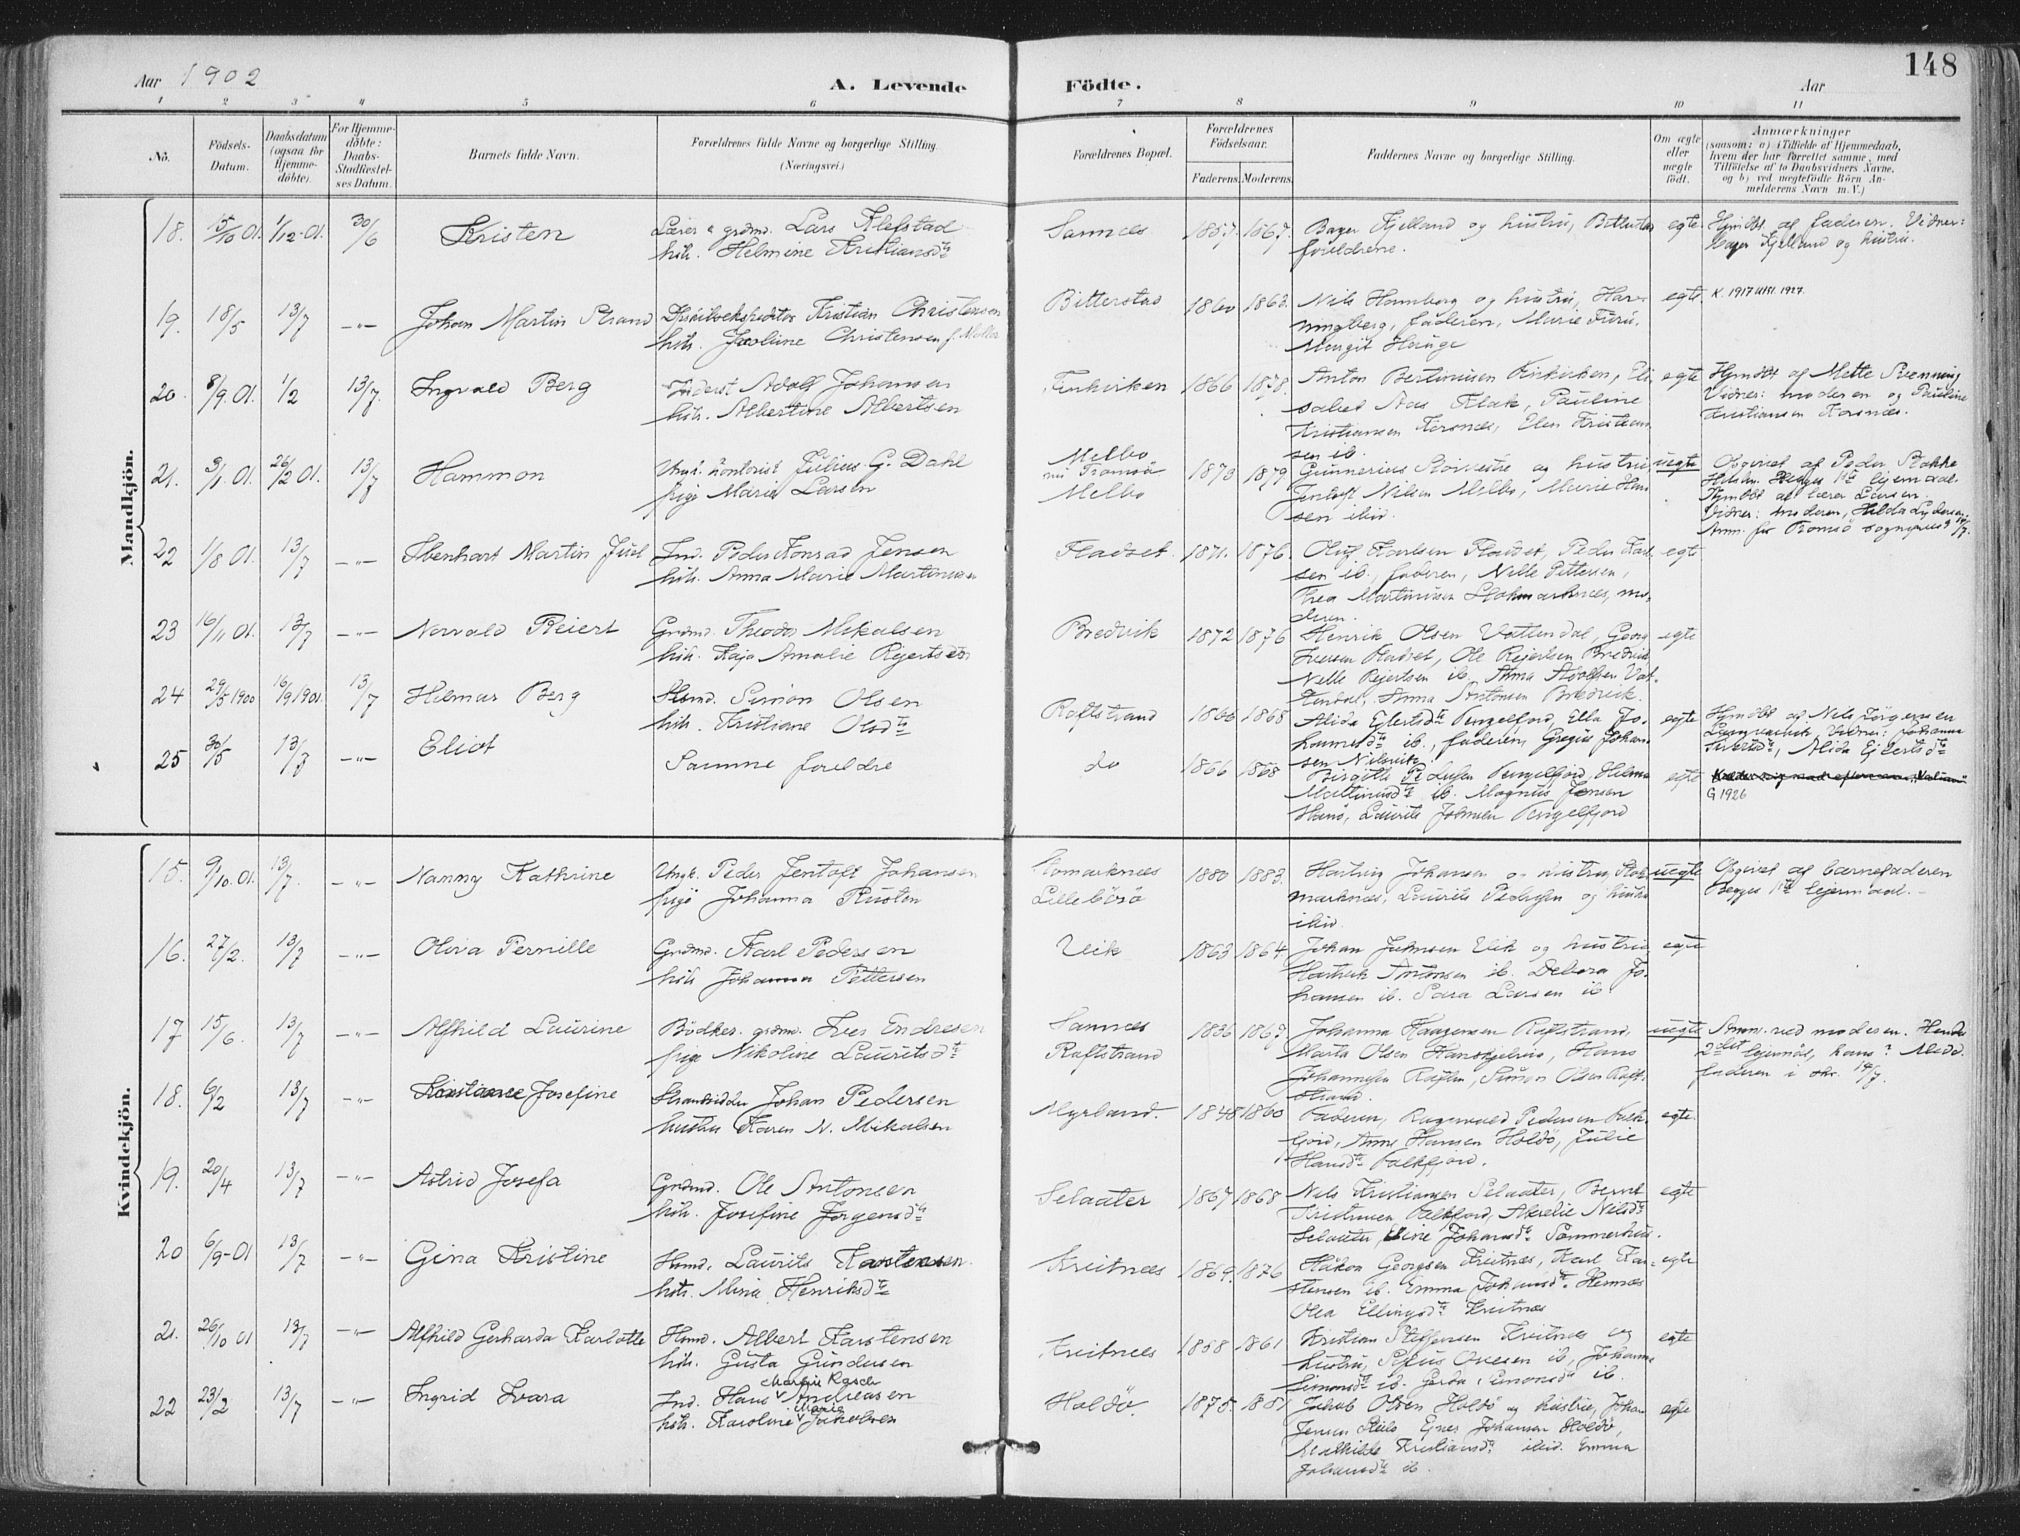 148
Aar 1902
A. Levende
Födte.
Aar
1 2 3 4 5 6 7 8 9 10 11
No.
Födsels-Datum.
Daabsdatum (ogsaa for Hjemme-döbte).
For Hjemme-döbte: Daabs-Stadfæstel-ses Datum.
Barnets fulde Navn.
Forældrenes fulde Navne og borgerlige Stilling.
(Næringsvei.)
Forældrenes Bopæl.
Forældrenes Födselsaar.
Faderens. Moderens.
Faddernes Navne og borgerlige Stilling.
Om ægte eller uægte födt.
Anmærkninger
(saasom: a) i Tilfælde af Hjemmedaab,
hvem der har forrettet samme, med
Tilföielse af to Daabsvidners Navne,
og b) ved uægtefödte Börn An-
melderens Navn m. V.)
Mandkjön.
18. 15/10 01. 1/12-01. 30/6 Kristen
Lærer & grdmd. Lars Klefstad
hstr. Helmine Kristiansdtr
Sannes 1857. 1867.
Bager Fjelland og hustru, Bitterstad
foreldrene.
egte
Hjmdbt af faderen. Vidner:
Bager Fjelland og hustru.
19. 18/5 13/7 -"- Johan Martin Strand
Kristian Christensen
hstr. Christensen f. Møller
Bitterstad 1860 1863.
Nils Hamberg og hustru, Har-
faderen, Marie Furu,
Margit Hauge
egte K. 1917 Utfl. 1927.
20. 8/9.01. 1/2 13/7. Ingvald Berg
Inderst Adolf Johansen
hstr. Albertine Albertsen
1866 1878.
Anton Bertinusen Kirkviken, Eli-
sabet Aas Klak, Pauline
Kristiansen Korsnes, Elen Kristian
sen ib.
egte
Hjmdbt af Mette Svenning
Vidner: moderen og Pauline
Kristiansen Korsnes.
21. 9/1 01. 26/2 01. 13/7 Hammon
Ungk. kontorist Julius G. Dahl
pige Marie Larsen
Melbo
nu Tromsö
Melbo
1873 1879
Gunnerius og hustru
Jentoft Nilsen Melbo, Marie Han
sen ibid.
uegte
Opgivet af Peder Stokke
Begges 1ste lejermaal.
Hjmdbt af lærer Larsen.
Vidner: moderen, Hilda
Anm. for Tromsö sogneprest
22 1/8 01. 13/7 -"- Ebenhart Martin Juul
Ind. Peder Konrad Jensen
hstr. Anna Marie Martinsen
Fladset 1871. 1876.
Oluf Karlsen Fladset, Peder Karl
sen ib., faderen, Nelle Pettersen,
Thea Martinusen Stokmarknes, mo-
deren.
egte
23 16/11 01. 13/7 -"- Norvald Reiert
Grdmd. Theodor Mikalsen
hstr. Kaja Amalie Rejertsdtr
Bredvik 1872 1876
Henrik Olsen Vattendal, Georg
Iversen Fladset, Ole Rejertsen Bredvik
Nelle Rejertsen ib. Anna Adolfsen Vat-
tendal, Anna Antonsen Bredvik.
egte
24 29/5 1900 16/9 1901 13/7 Hilmar Berg
Hsmd. Simon Olsen
hstr. Kristiane Olsdtr
Raftstrand 1866 1868
Alida Ejlertsdtr Tengelfjord, Ella Jo-
hannesdtr ib., faderen, Gregus Johan-
sen
egte
Hjmdbt af Nils Jörgensen
Vidner: Johanna
Sivertsdtr, Alida Ejlertsdtr
25 30/5 13/7 -"- Eliot
Samme foreldre
do 1866 1868
Birgitte Pedersen Tengelfjord, Helma
Martinusdtr ib. Magnus Jensen
Hanö, Laurits Johnsen Tengelfjord
egte
G 1926
Kvindekjön.
15. 9/10.01. 13/7. -"- Nanny Kathrine
Ungk. Peder Jentoft Johansen
pige Johanna Rusten
Stomarknes
Lillebörö
1880 1883.
Hartvig Johansen og hustru, Stok-
marknes, Laurits Pedersen og hustru
ibid.
uegte
Opgivet af barnefaderen
Begges 1ste lejermaal.
16. 27/2. 13/7 -"- Oliva Pernille
Grdmd. Karl Pedersen
hstr. Johanna Pettersen
Vik 1863 1864
Johan Johnsen Vik og hustru
Hartvik Antonsen ib. Debora Jo-
hansen ib. Sara Larsen ib.
egte
17 15/6. 13/7 -"- Alfhild Laurine
Bødker. grdmd. Iver Endresen
pige Nikoline Lauritsdtr
Sannes
Raftstrand
1836 1867.
Johanna Haagensen Raftstrand
Marta Olsen, Hans
Johannesen Raften, Simon Olsen Raft-
strand.
uegte
Anm. ved moderen. Hendes
2det lejermål, hans? Medd.
faderen i skr. 14/7.
18. 6/2 13/7 -"- Kristiane Josefine
Strandsidder Johan Pedersen
hustru Karen N. Mikalsen
Myrland. 1848 1860
Faderen, Ragnvald Pedersen Falk-
fjord, Anne Hansen Holdö, Julie
Hansdtr Falkfjord.
egte.
19. 20/4 13/7 -"- Astrid Josefa
Grdmd. Ole Antonsen
hstr. Josefine Jørgensdtr
Selaater 1867 1868
Nils Kristiansen Selaater, Bernt
Kristiansen Falkfjord, Nilsdtr
Selaater, Eline Johansdtr Sommerhus.
egte
20 6/9-01 13/7 -"- Gina Kristine
Hsmd. Laurits Karstensen
hstr. Mina Henriksdtr
Kreitnes 1869. 1876
Håkon Georgsen Kreitnes, Karl Kar-
stensen ib. Emma Johansdtr Hennes
Olea Ellingsdtr Kreitnes
egte
21. 26/10 01 13/7 -"- Alfhild Gerharda Karlotte
Hsmd. Albert Karstensen
hstr. Gusta Gundersen
Kreitnes 1858 1861
Kristian Steffensen Kreitnes og
hustru, Ovesen ib, Johanna
Simonsdtr ib. Gerda Simonsdtr ib.
egte
22 23/2 13/7 -"- Ingrid Svara
Ind. Hans Martin Rasch Andreasen
hstr. Karoline Marie Jakobsen
Holdö. 1875. 1881
Jakob Olsen Holdö og hustru, Johan
Jensen, Johansen Holdö,
Mathilde Kristiansdtr ibid. Emma
Johansdtr ib.
egte